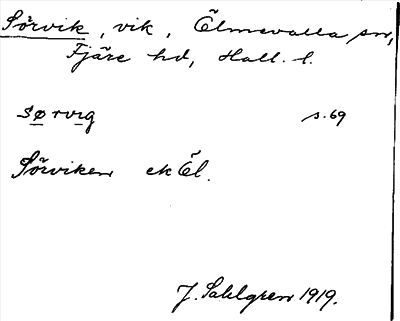 Sörvik, vik, Ölmevalla sn,
Fjäre hd, Hall. l.
sørvig s. 69
Sörviken ek Öl.
J. Sahlgren 1919.